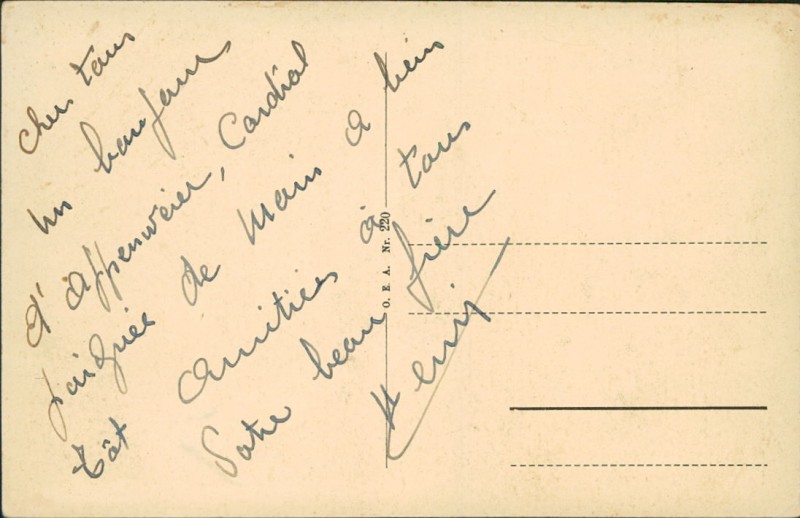 Chers tous
Un bonjour
d'Appenweier, Cordial
poignée de Main a bien
tôt Amitiés à tous
Votre beau frère
Henri
O. E. A. Nr. 220